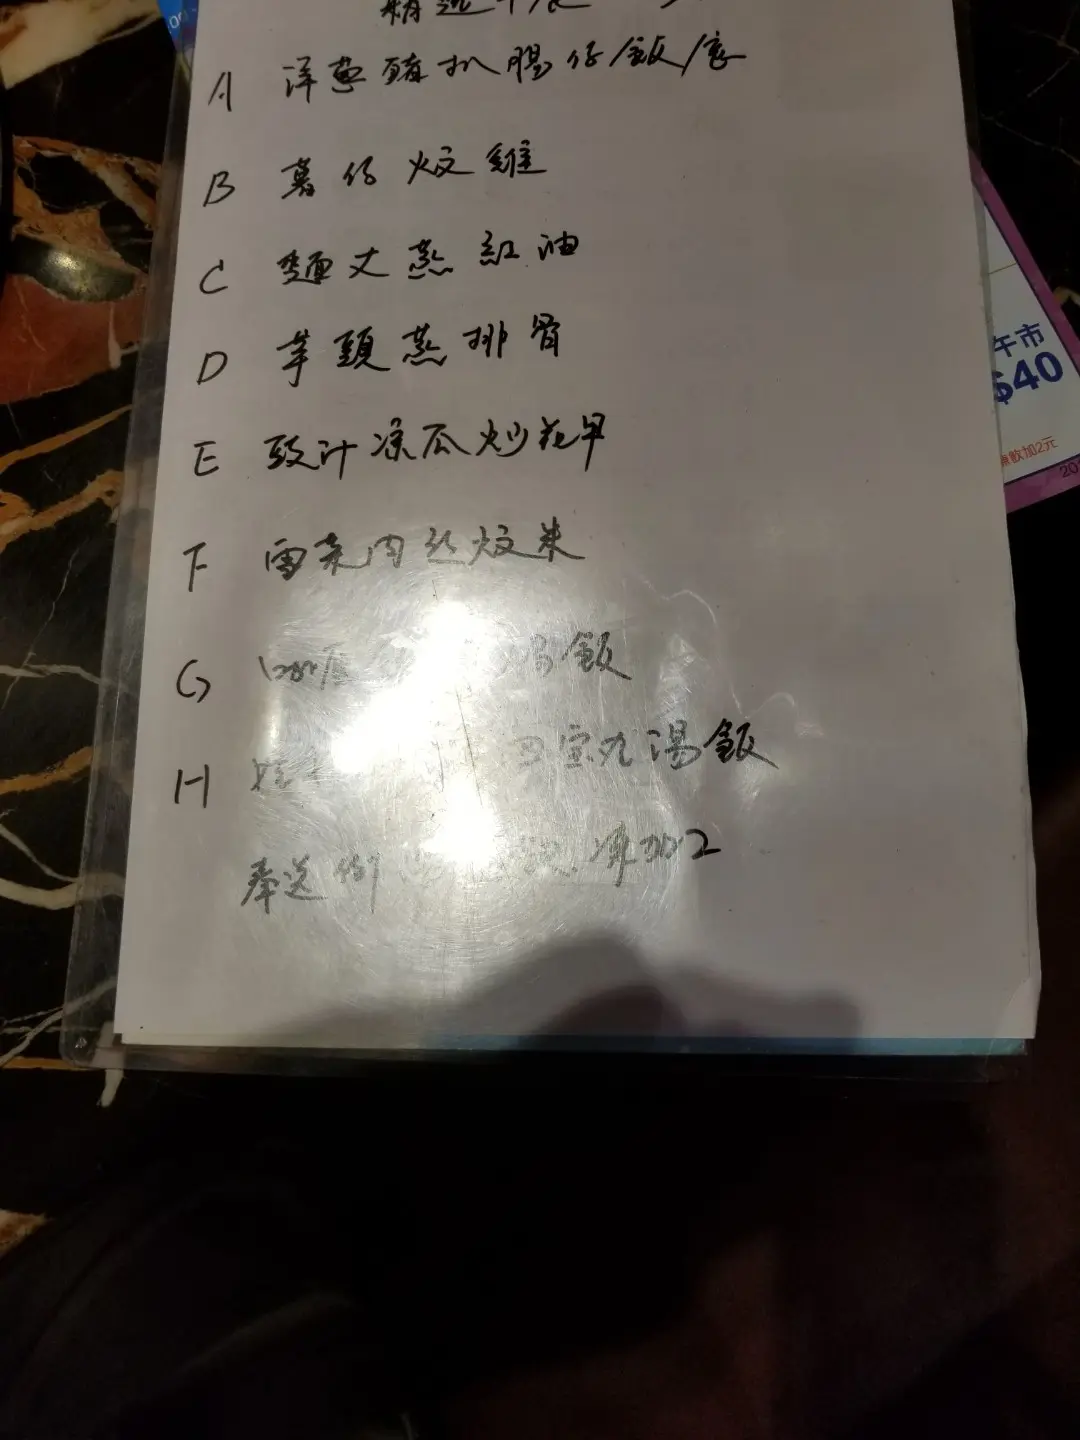 精選午
A 洋葱豬扒腸仔飯/底
B 薯仔炆雞
C 麵丈蒸紅油
D 芋頭蒸排骨
E 豉汁凉瓜炒花甲
F 雪菜肉丝炆米
G 飯
H 四宝丸湯飯
奉送例 凍加2
午市
$40
飲加2元
20